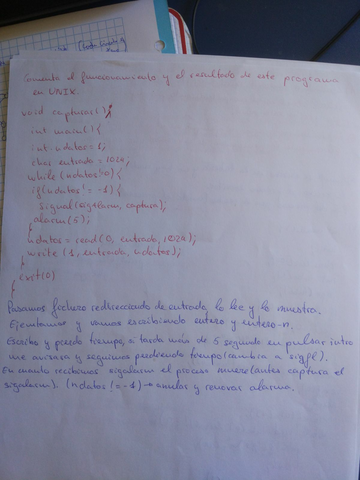 Comenta el funcionamiento y el resultado de este programa
en UNIX.
void capturas();
int main() {
int ndatos = 1;
char entrada = 1024,
while (ndatos!=0) {
if(ndatos! = -1) {
signal(sigalarm, captura);
alarm(5);
}
ndatos = read(0, entrada, 1024);
write (1, entrada, ndatos);
}
exit(0)
}
Pasamos fichero redireccionado de entrada, lo lee y lo muestra.
Ejecutamos y vamos escribiendo entero y entero-n.
Escribo y pierdo tiempo, si tarda más de 5 segundo en pulsar intro
me avisara y seguimos perdiendo tiempo (cambia a
En cuanto recibimos sigalarm el proceso muere(antes captura el
sigalarm). (ndatos != -1) → anulas y renovas alarma.